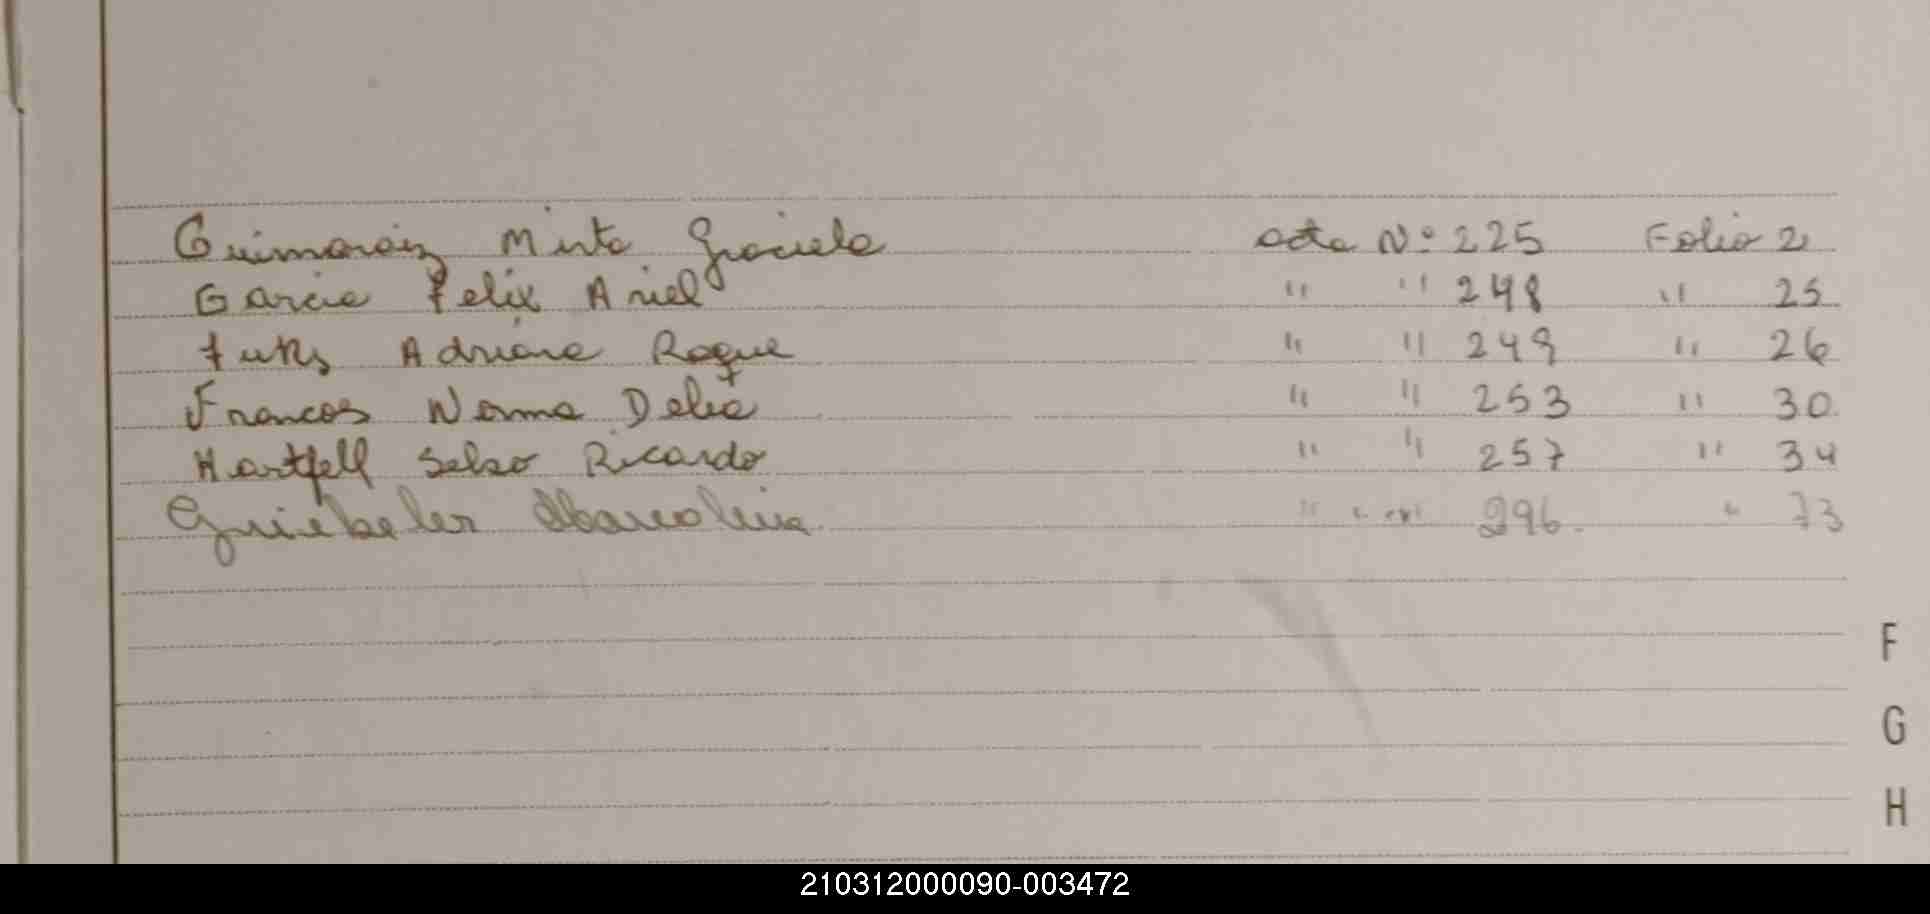 Guimaraiz Mirta Graciela acta Nº 225 Folio 2
Garcia Felix Ariel " " 248 " 25
Fuks Adriana Roque " " 249 " 26
Francos Norma Delia " " 253 " 30
Hartfell Selso Ricardo " " 257 " 34
Griebeler Marcolina " " " 296. " 73
F
G
H
210312000090-003472